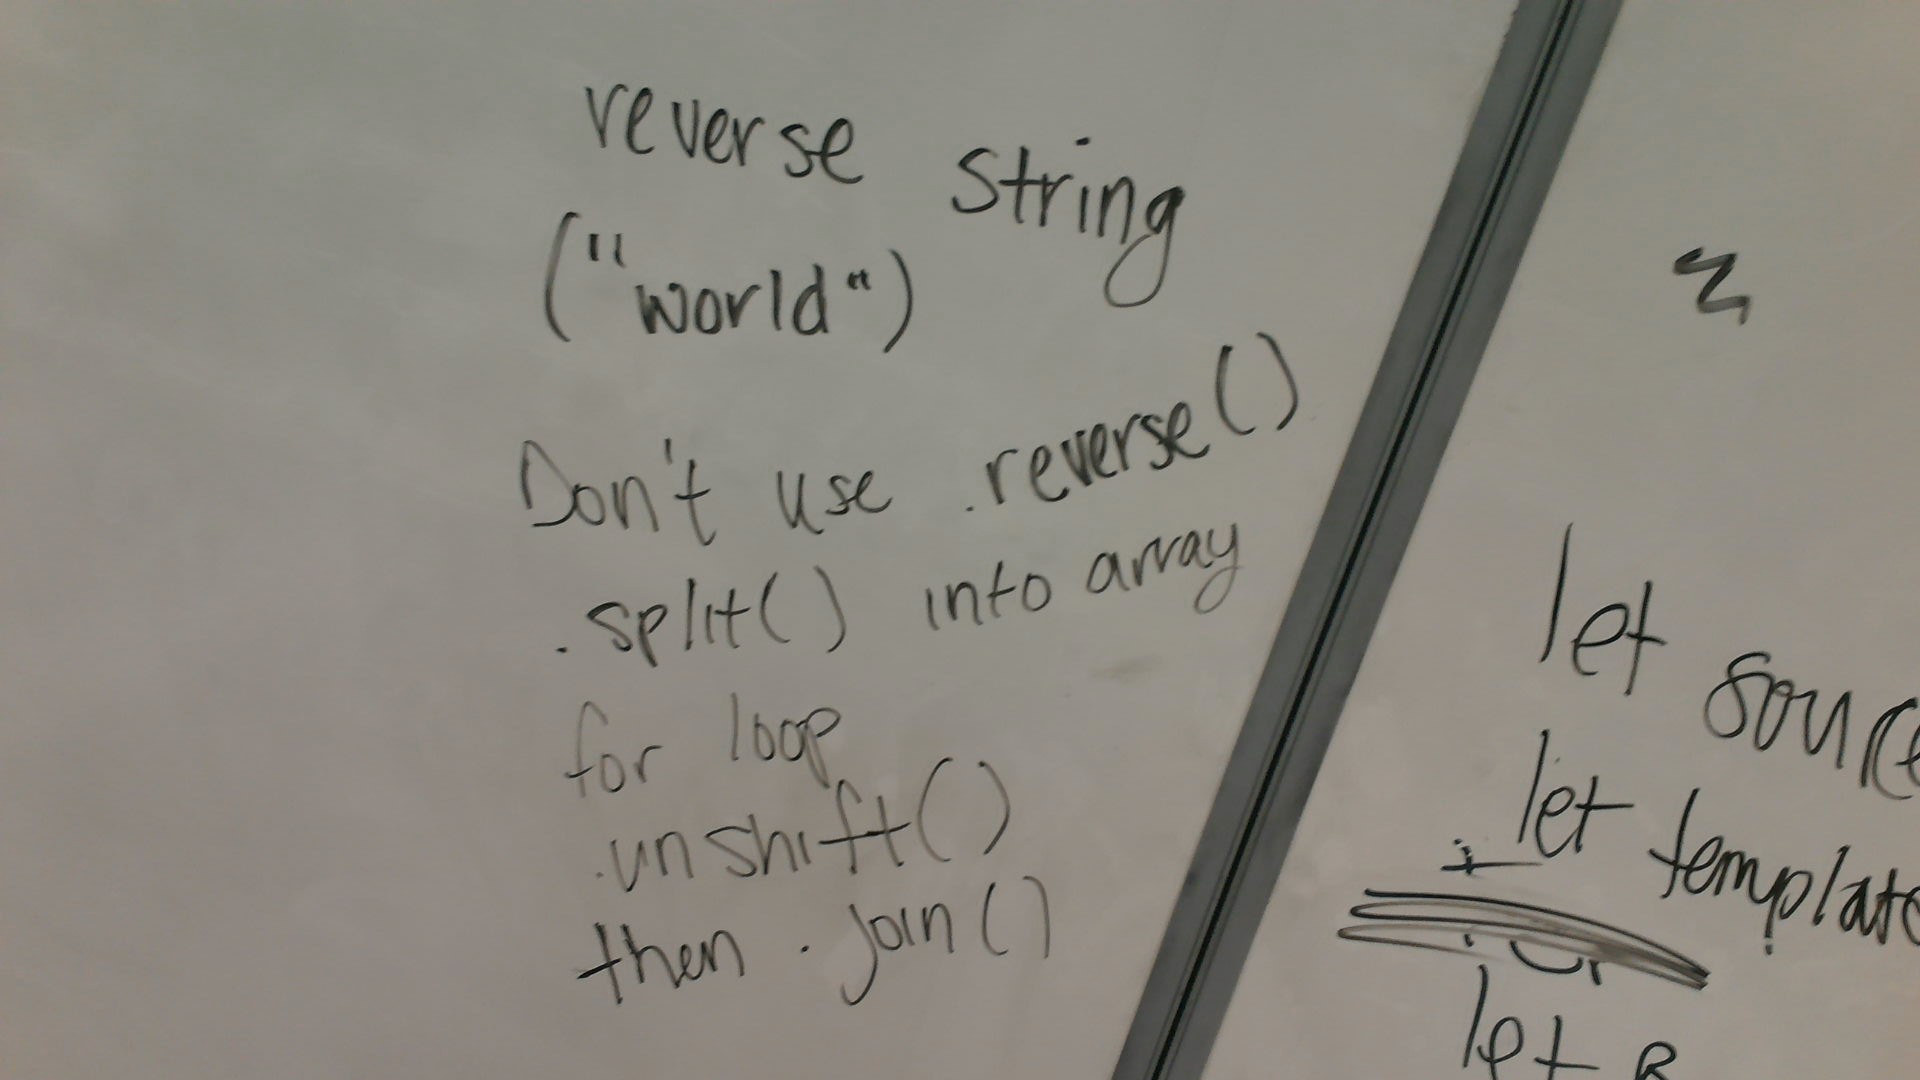 reverse string
("world")
Don't use .reverse()
.split() into array
for loop
.unshift()
then .join()
let
let
let